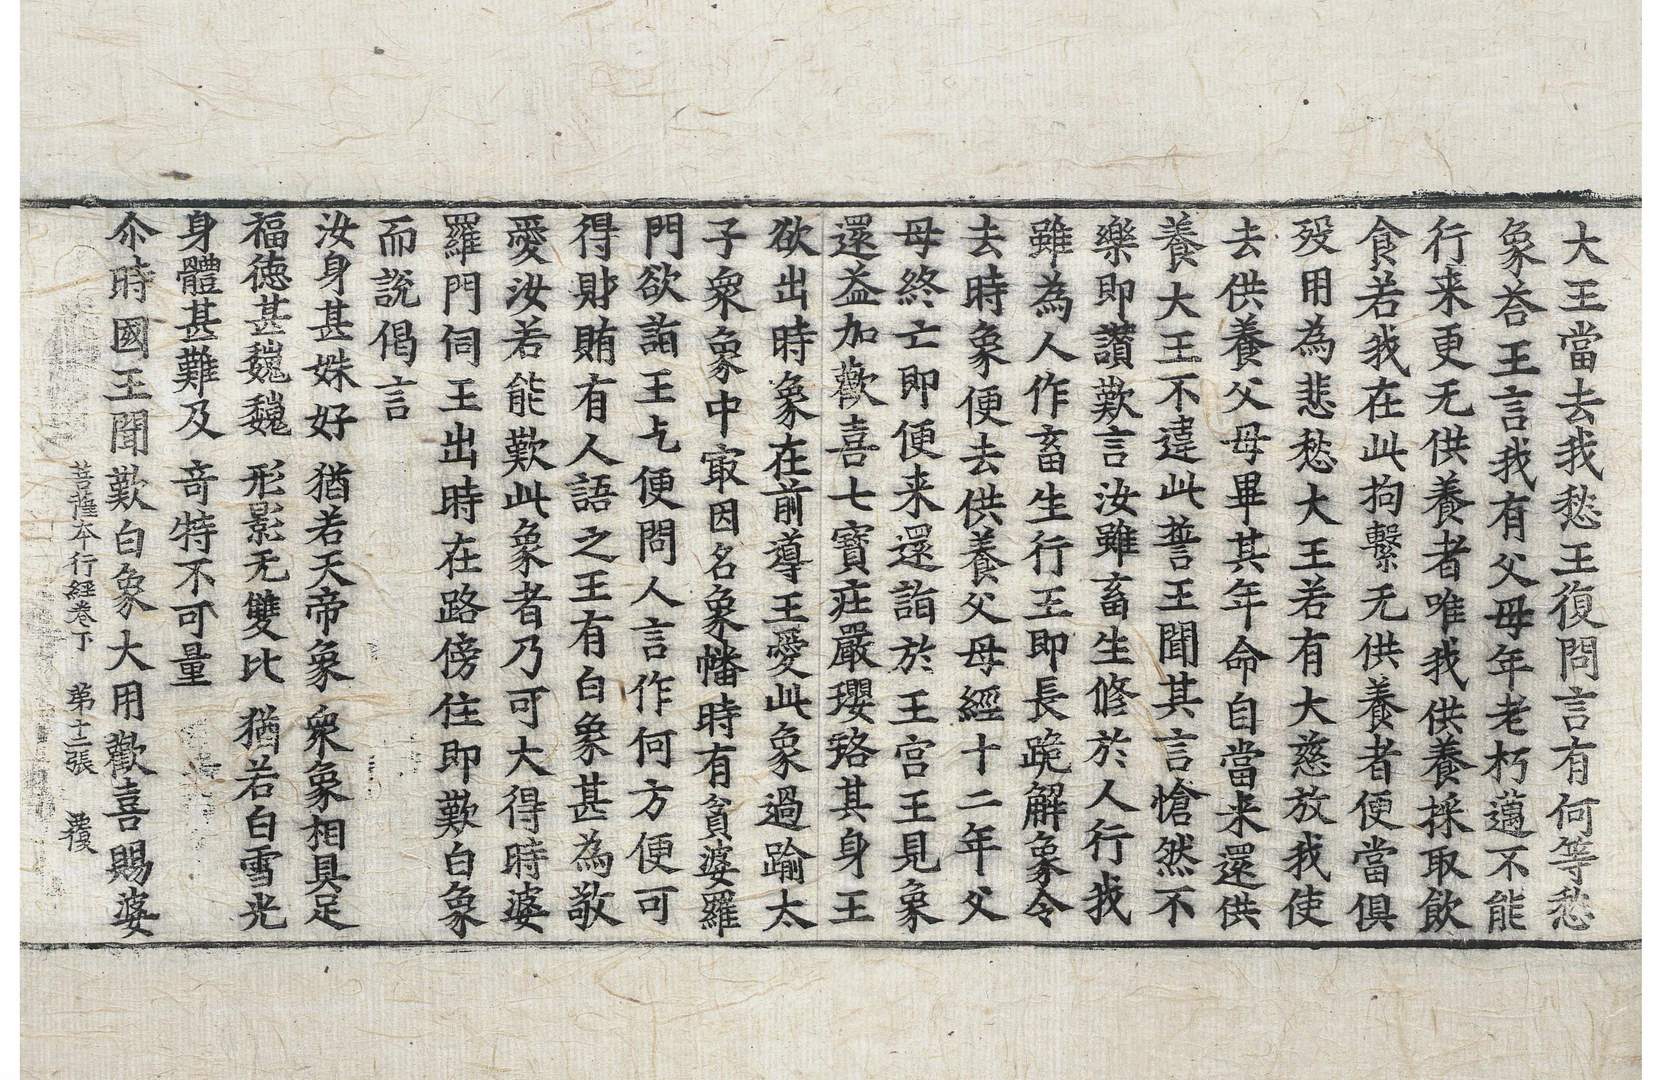 大王當去我愁王復問言有何等愁
象荅王言我有父母年老朽邁不能
行来更无供養者唯我供養採取飲
食若我在此拘繫无供養者便當俱
歿用為悲愁大王若有大慈放我使
去供養父母畢其年命自當来還供
養大王不違此誓王聞其言愴然不
樂即讚歎言汝雖畜生修於人行我
雖為人作畜生行王即長跪解象令
去時象便去供養父母經十二年父
母終亡即便来還詣於王宫王見象
還益加歡喜七寶莊嚴瓔珞其身王
欲出時象在前導王愛此象過踰太
子衆象中㝡因名象幡時有貧婆羅
門欲詣王乞便問人言作何方便可
得財賄有人語之王有白象甚為敬
愛汝若能歎此象者乃可大得時婆
羅門伺王出時在路傍住即歎白象
而說偈言
汝身甚姝好 猶若天帝象 衆象相具足
福德甚巍巍 形影无雙比 猶若白雪光
身體甚難及 奇特不可量
尒時國王聞歎白象大用歡喜賜婆
菩薩本行經卷下 第十二張 覆